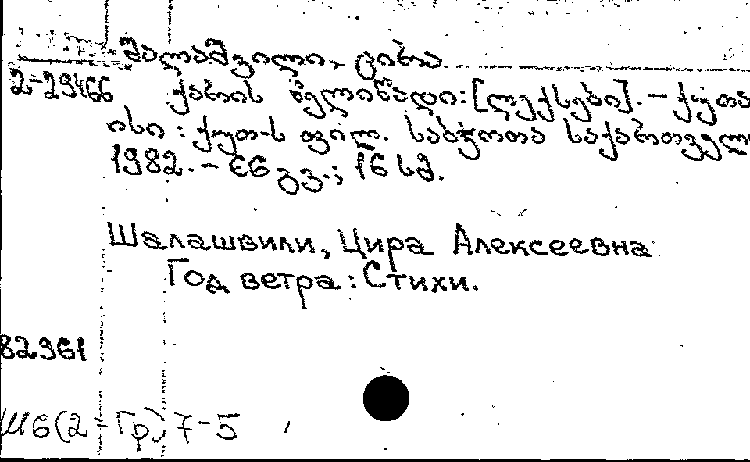 შალაშვილი, ცირა
2-29466 ქარის წელიწადი: [ლექსები]. – ქუთა
ისი : ქუთ-ს ფილ. საბჭოთა საქართველ
1982. – 66 გვ.; 16 სმ.
Шалашвили, Цира Алексеевна
Год ветра : Стихи.
82961
Ш6(2=Гр)7-5